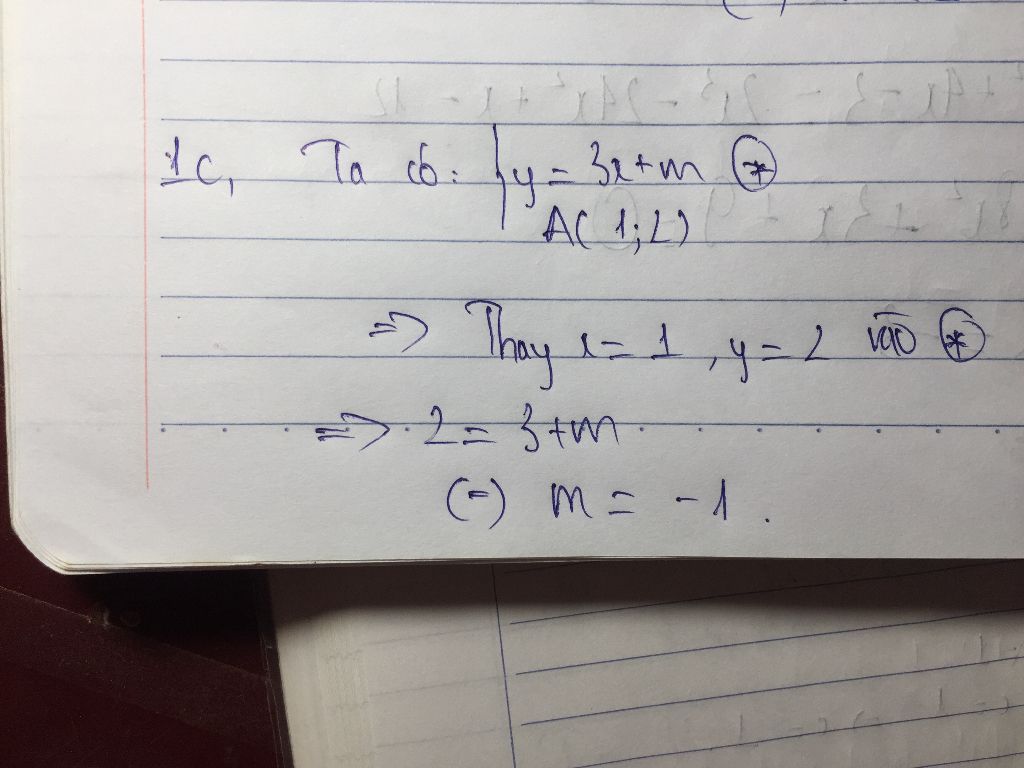 1c, Ta có: { y = 3x + m (*)
A( 1; 2)
=> Thay x = 1, y = 2 vào (*)
=> 2 = 3 + m
(=) m = -1.